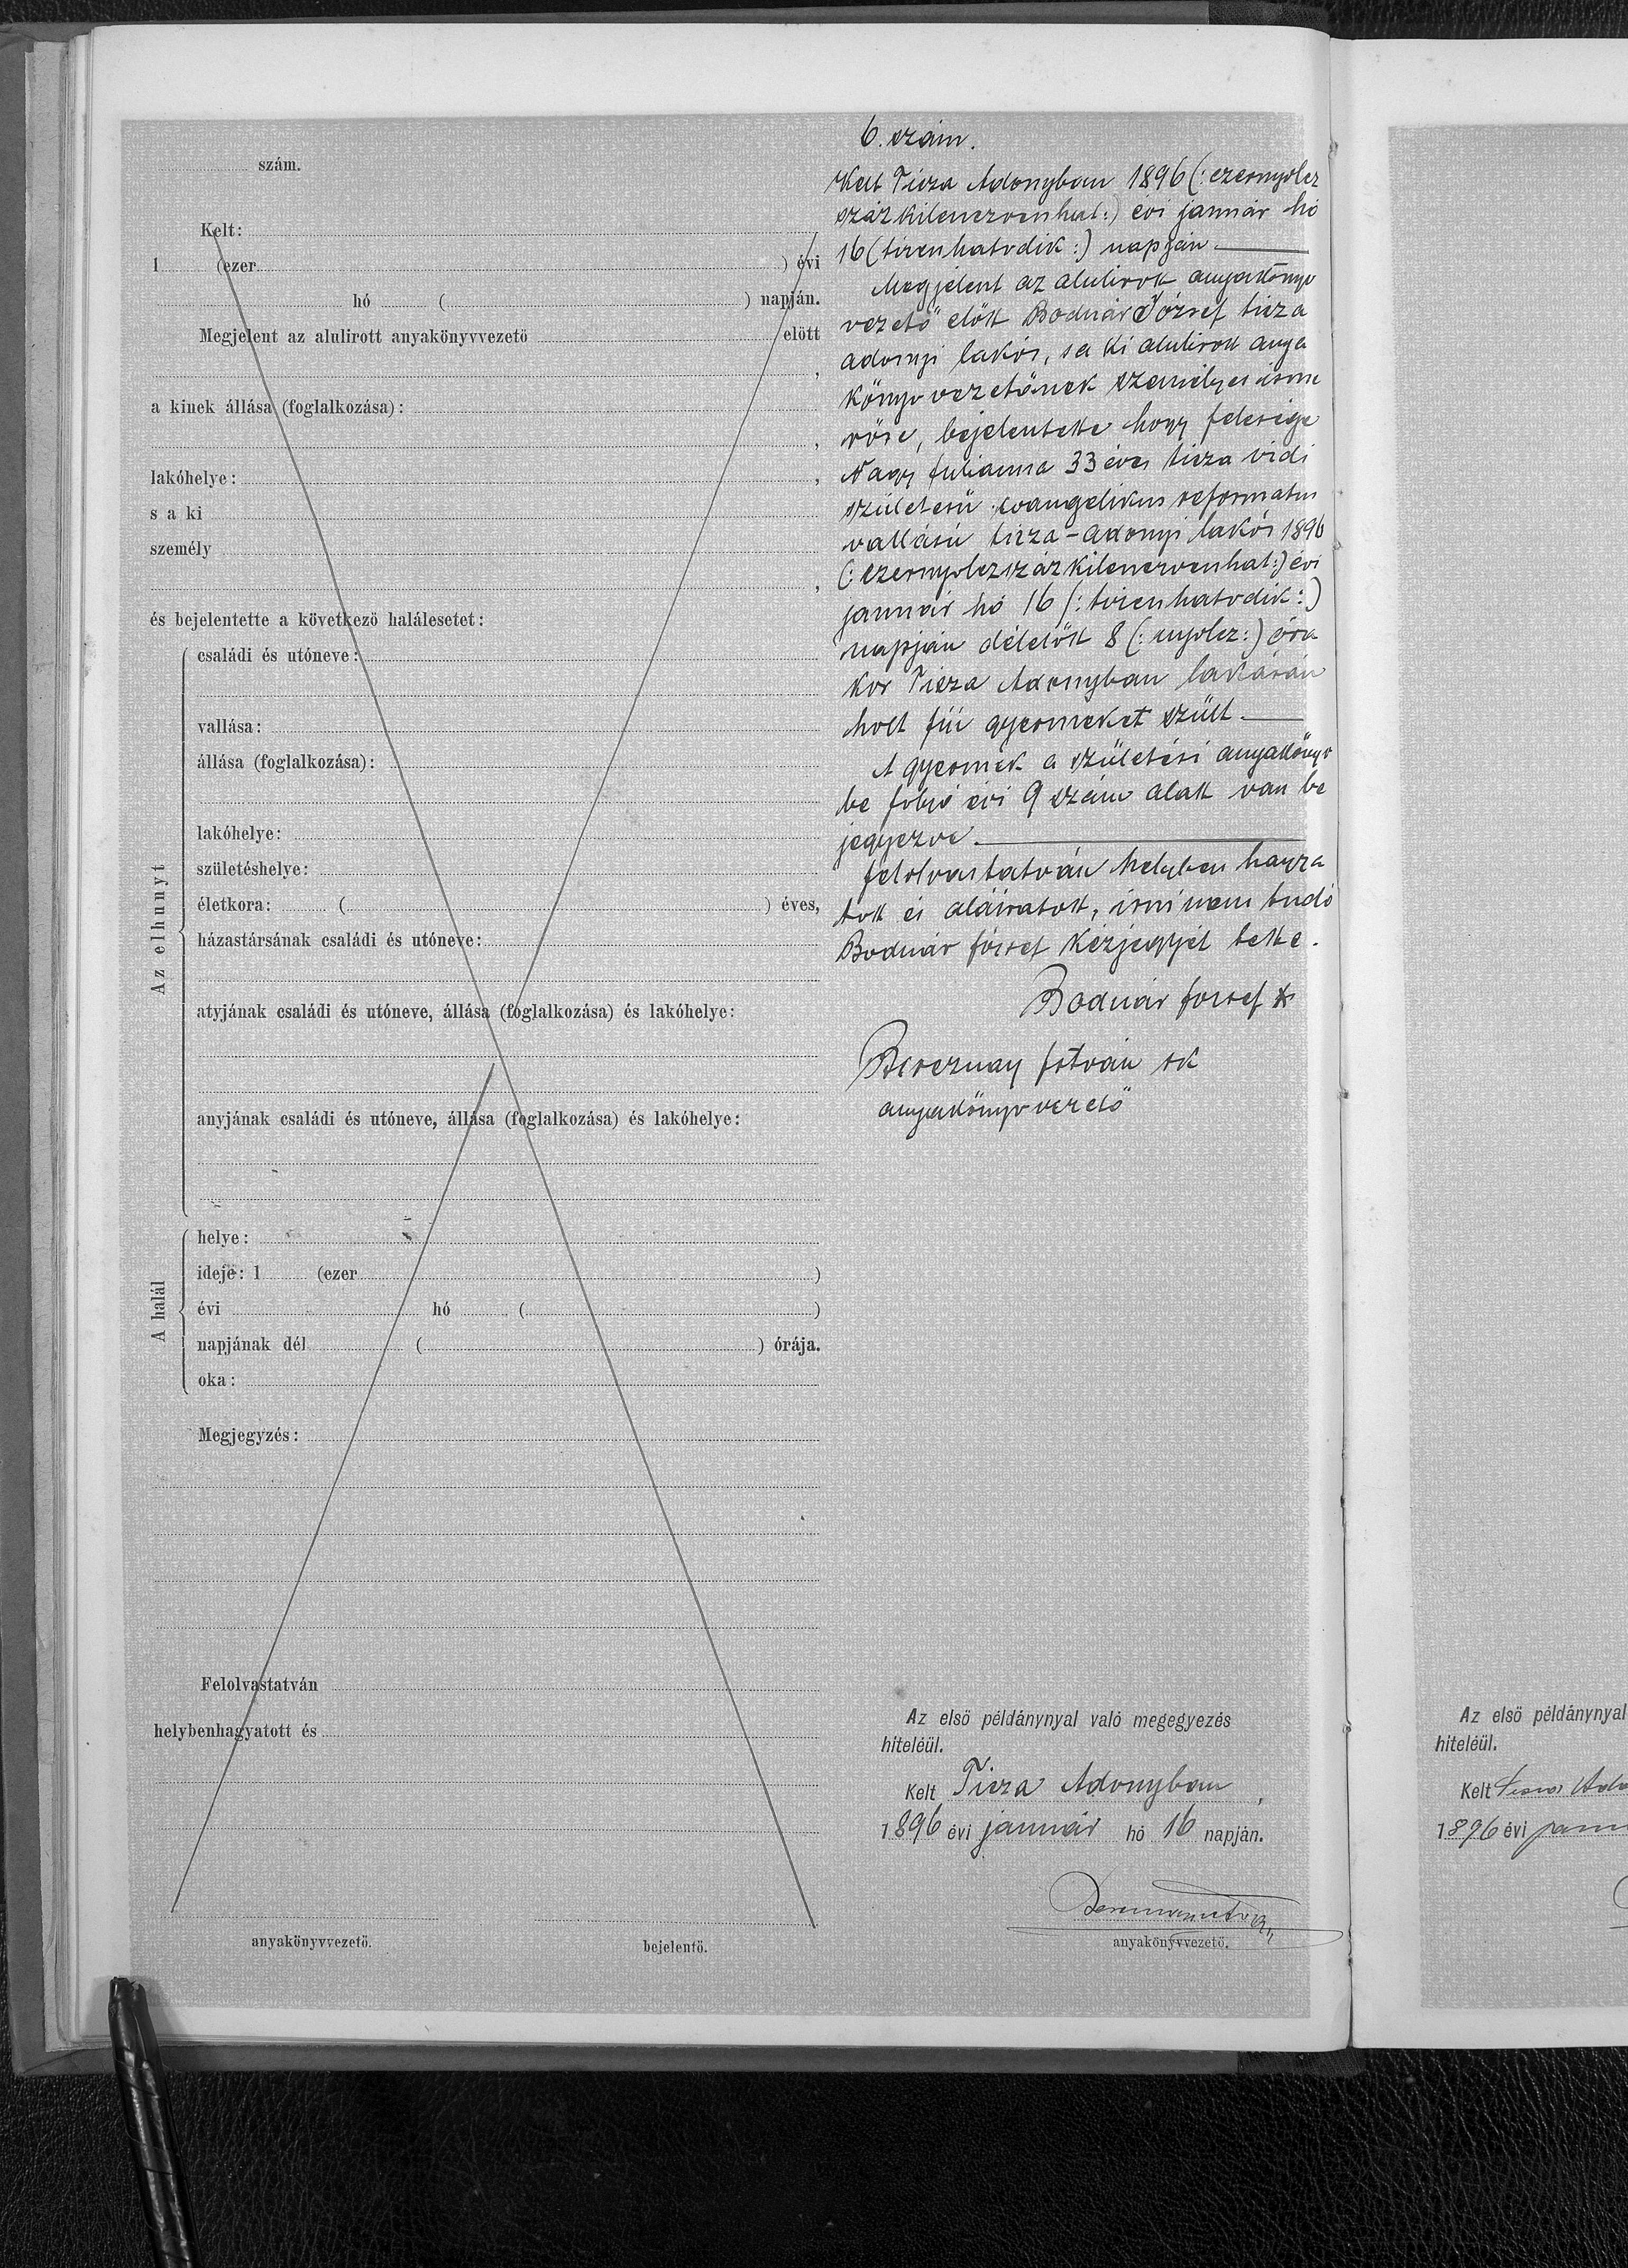 szám.
Kelt:
1 (ezer ) évi
hó ( ) napján.
Megjelent az alulirott anyakönyvvezető előtt
,
a kinek állása (foglalkozása):
,
lakóhelye: ,
s a ki
személy
,
és bejelentette a következő halálesetet:
Az elhunyt
családi és utóneve:
vallása:
állása (foglalkozása):
lakóhelye:
születéshelye:
életkora: ( ) éves,
házastársának családi és utóneve:
atyjának családi és utóneve, állása (foglalkozása) és lakóhelye:
anyjának családi és utóneve, állása (foglalkozása) és lakóhelye:
A halál
helye:
ideje: 1 (ezer )
évi hó ( )
napjának dél ( ) órája.
oka:
Megjegyzés:
Felolvastatván
helybenhagyatott és
anyakönyvvezető.
bejelentő.
6. szám.
Kelt Tisza Adonyban 1896 (: ezernyolcz
száz kilenczvenhat:) évi január hó
16 (tizenhatodik:) napján
Megjelent az alulirott anyakönyv
vezető előtt Bodnár József tisza
adonyi lakós, s a ki alulirott anya
könyvvezetőnek személyes isme
rőse, bejelentette hogy felesége
Nagy Julianna 33 éves tisza vidi
születésü evangelikus reformatus
vallásu tisza-adonyi lakós 1896
(: ezernyolczszáz kilenczvenhat:) évi
január hó 16 (: tizenhatodik:)
napján délelőtt 8 (: nyolcz:) óra
kor Tisza Adonyban lakásán
holt fiú gyermeket szült.
A gyermek a születési anyakönyv
be folyó évi 9 szám alatt van be
jegyezve.
Felolvastatván helyben hagya
tott és aláiratott, irni nem tudó
Bodnár József kézjegyjét tette.
Bodnár József
István sk
anyakönyvvezető
Az első példánynyal való megegyezés
hiteléül.
Kelt Tisza Adonyban,
1896 évi január hó 16 napján.
anyakönyvvezető.
Az első példánynyal
hiteléül.
Kelt Tisza
1896 évi